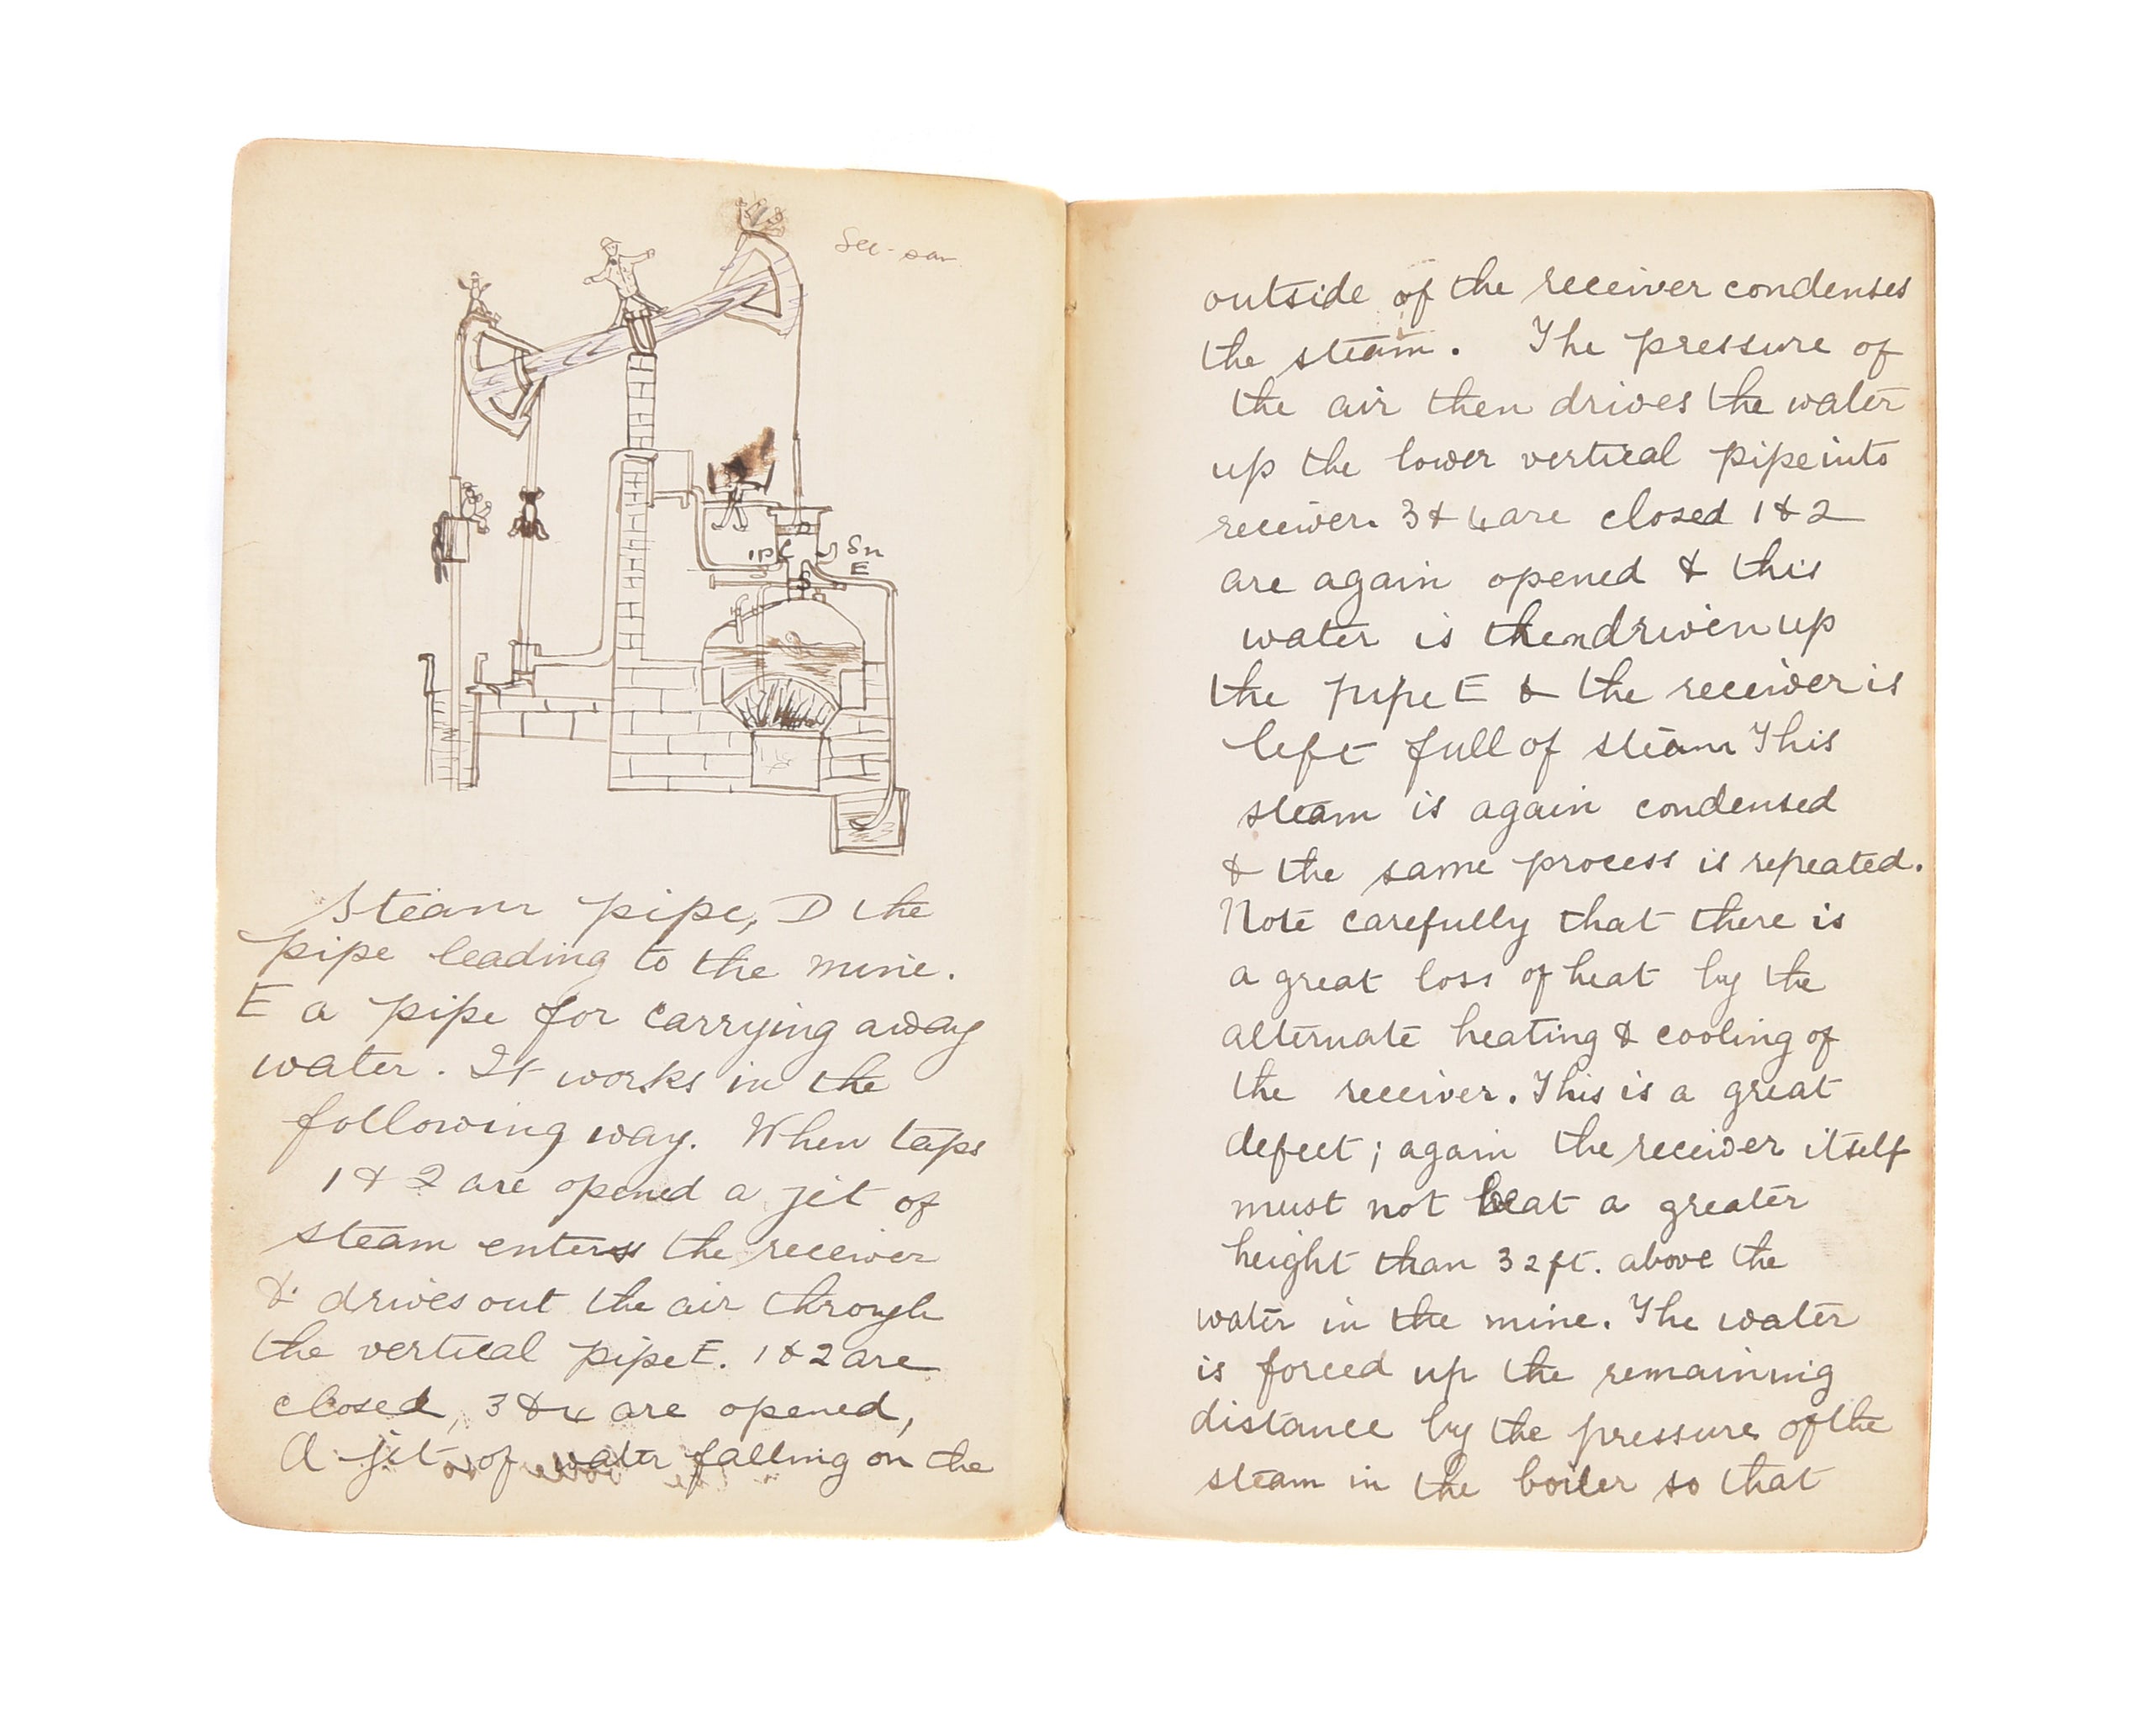 See-saw
D
1 P C
Sn
E
S
Steam pipe, D the
pipe leading to the mine.
E a pipe for carrying away
water. It works in the
following way. When taps
1 & 2 are opened a jet of
steam enters the receiver
& drives out the air through
the vertical pipe E. 1 & 2 are
closed, 3 & 4 are opened,
A jet of water falling on the
outside of the receiver condenses
the steam. The pressure of
the air then drives the water
up the lower vertical pipe into
receiver. 3 & 4 are closed 1 & 2
are again opened & this
water is then driven up
the pipe E & the receiver is
left full of steam This
steam is again condensed
& the same process is repeated.
Note carefully that there is
a great loss of heat by the
alternate heating & cooling of
the receiver. This is a great
defect; again the receiver itself
must not be at a greater
height than 32 ft. above the
water in the mine. The water
is forced up the remaining
distance by the pressure of the
steam in the boiler so that